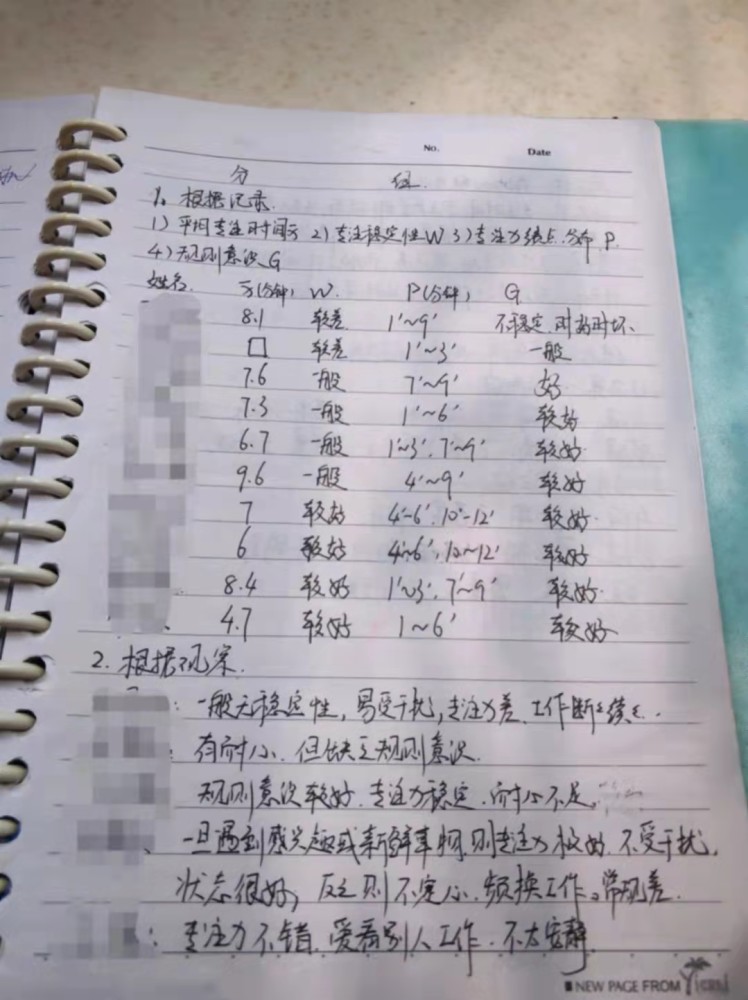 No. Date
分 组
1. 根据记录.
1) 平均专注时间 2) 专注稳定性W 3) 专注力结点分布 P.
4) 规则意识G
姓名 (分钟) W. P(分钟) G
8.1 较差 1'~9' 不稳定.时好时坏.
□ 较差 1'~3' 一般
7.6 一般 7'~9' 好
7.3 一般 1'~6' 较好
6.7 一般 1'~3'.7'~9' 较好.
9.6 一般 4'~9' 较好
7 较好 4'-6'.10'-12' 较好.
6 较好 4'~6'.10~12' 较好
8.4 较好 1'~3'.7'~9' 较好.
4.7 较好 1~6' 较好
2. 根据观察.
: 一般无稳定性,易受干扰,专注力差.工作断断续续.
: 有耐心.但缺乏规则意识.
规则意识较好.专注力稳定.耐心不足.
一旦遇到感兴趣或新鲜事物.则专注力极好.不受干扰.
状态很好; 反之则不定心.频换工作。常规差.
: 专注力不错.爱看别人工作.不太安静
NEW PAGE FROM